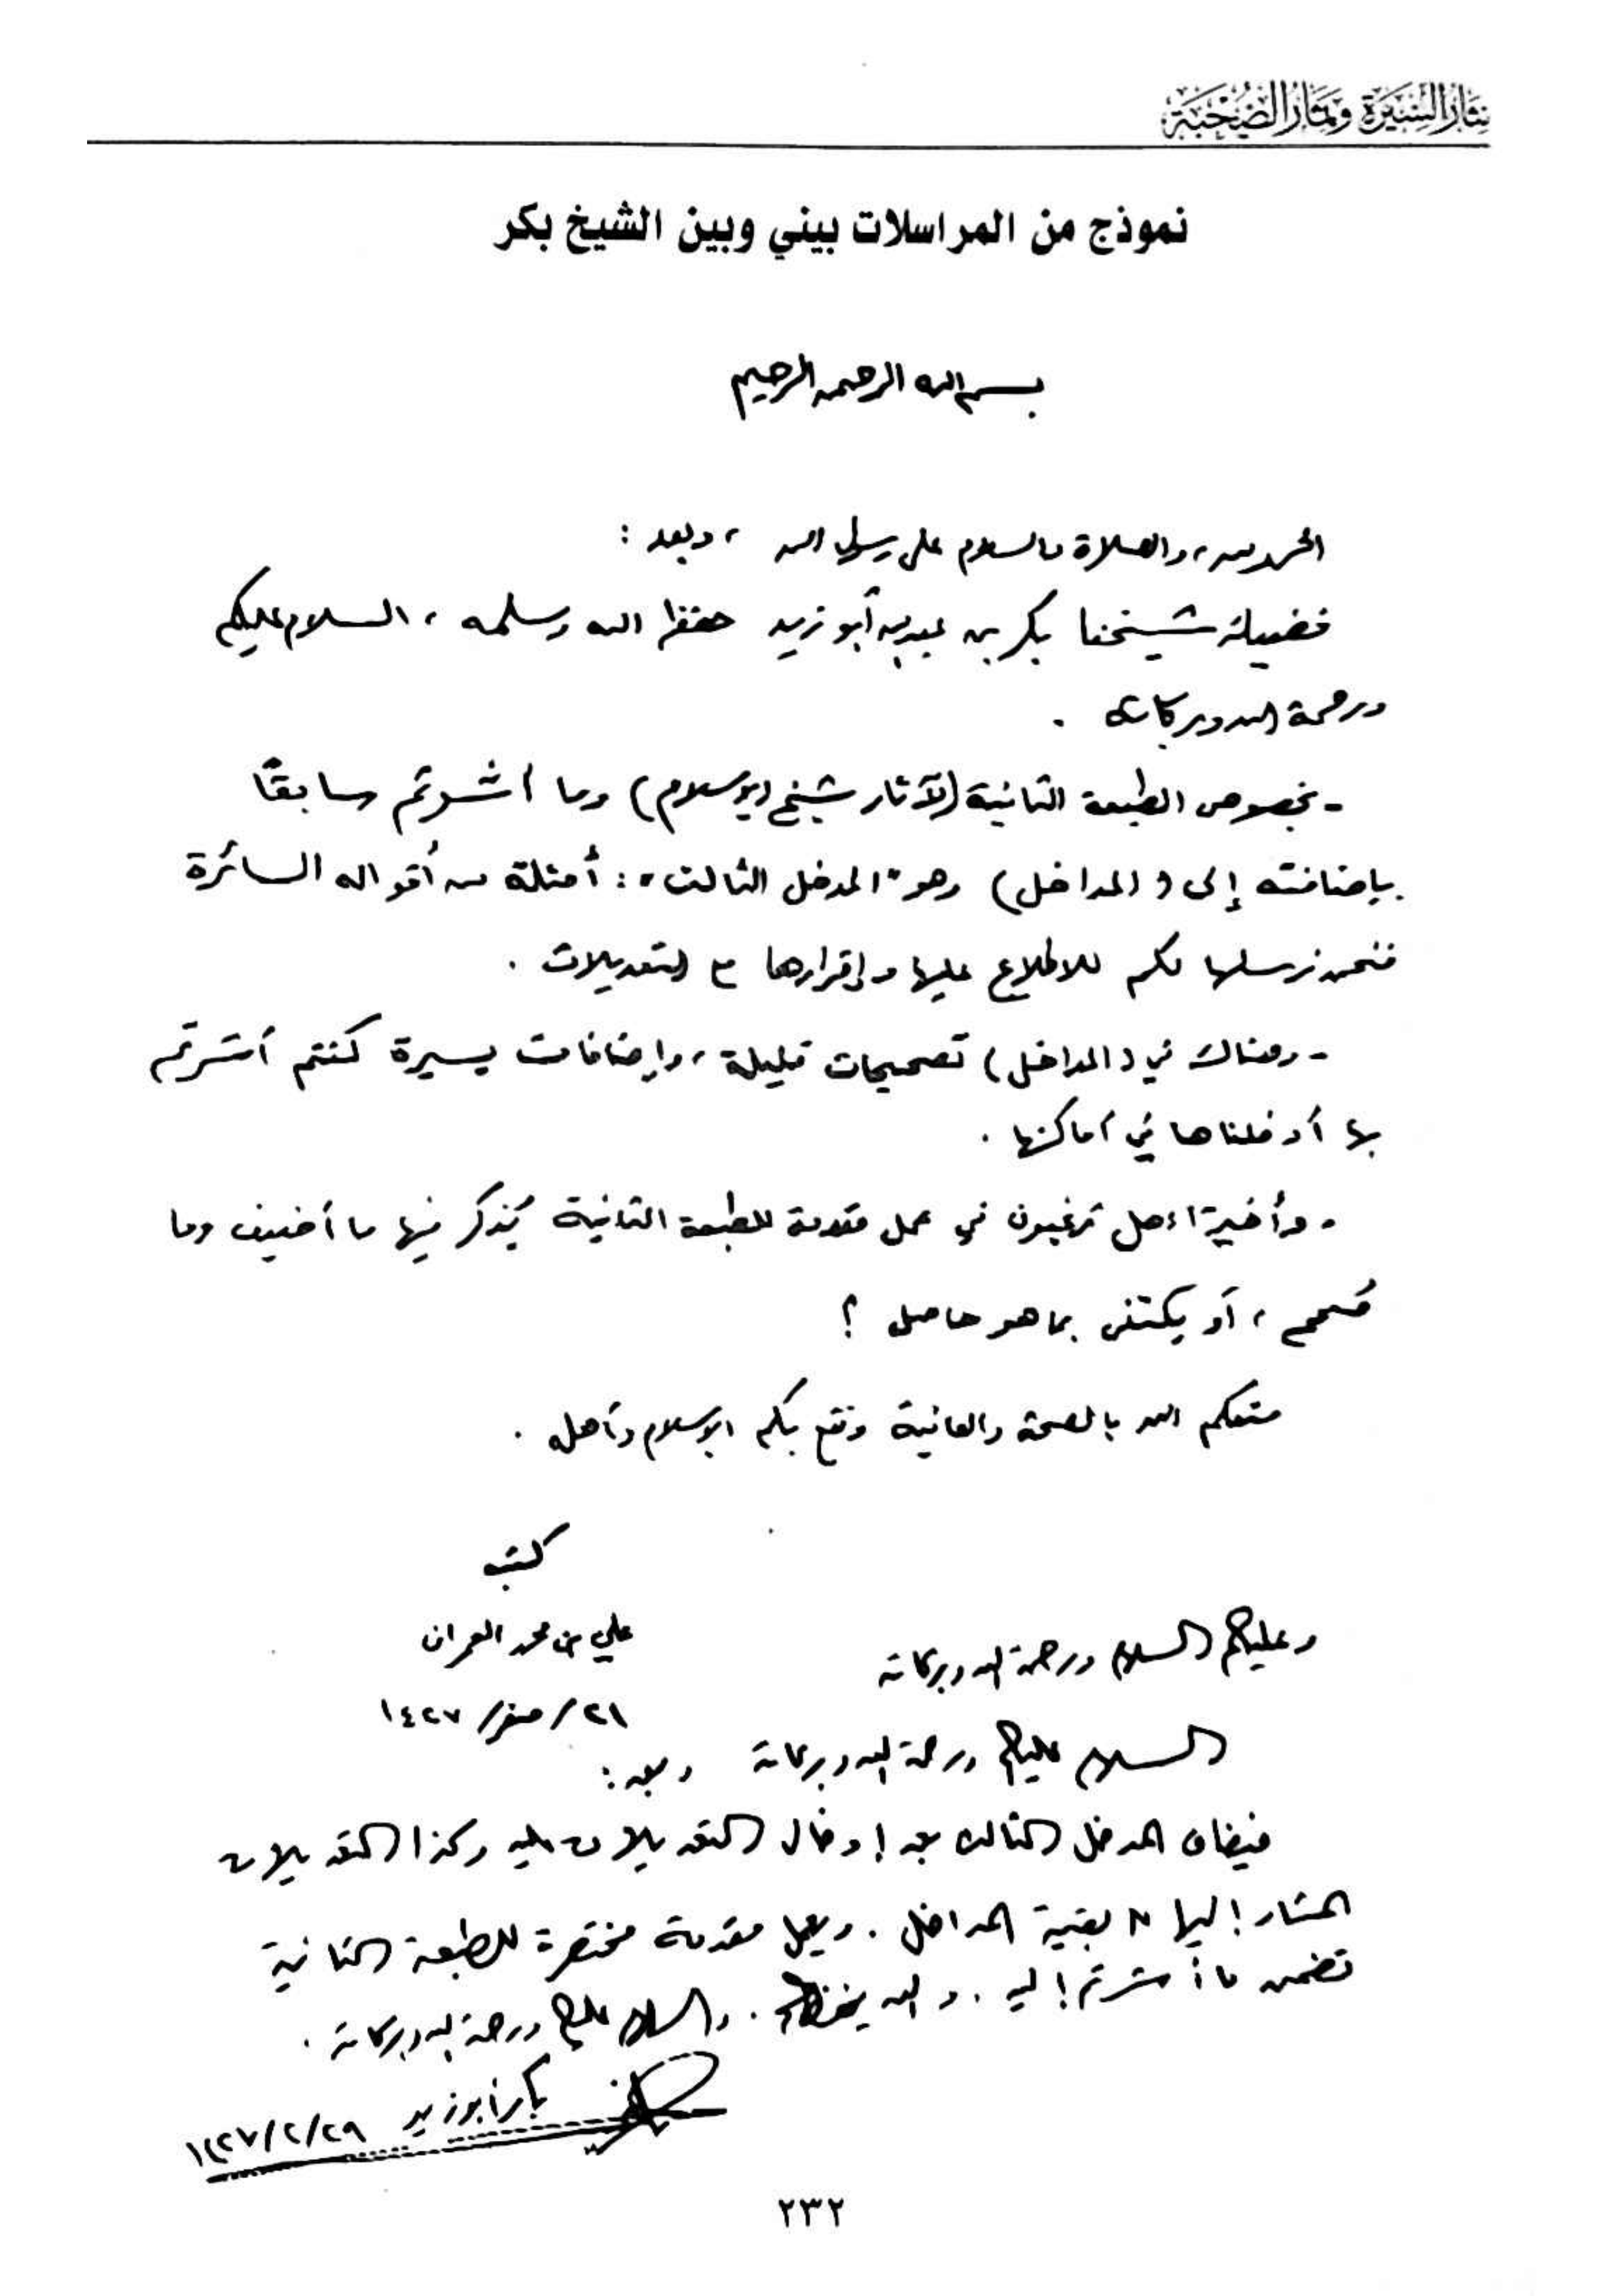 نثار السيرة وثمار الصحبة
نموذج من المراسلات بيني وبين الشيخ بكر
بسم الله الرحمن الرحيم
الحمد لله، والصلاة والسلام على رسول الله، وبعد:
فضيلة شيخنا بكر بن عبدالله أبو زيد حفظه الله وسلمه، السلام عليكم
ورحمة الله وبركاته.
- بخصوص الطبعة الثانية (لآثار شيخ الإسلام) وما أشرتم سابقًا
بإضافته إلى (المداخل) وهو "المدخل الثالث": أمثلة من أقواله السائرة
فنحن نرسلها لكم للاطلاع عليها وإقرارها مع التعديلات.
- وهناك في (المداخل) تصحيحات قليلة، وإضافات يسيرة كنتم أشرتم
بها أدخلناها في أماكنها.
- وأخيرًا هل ترغبون في عمل مقدمة للطبعة الثانية يُذكر فيها ما أضيف وما
صُحح، أو يكتفى بما هو حاصل؟
متعكم الله بالصحة والعافية ونفع بكم الإسلام وأهله.
كتبه
علي بن محمد العمران
٢١/صفر/١٤٢٧
وعليكم السلام ورحمة الله وبركاته
السلام عليكم ورحمة الله وبركاته وبعد:
فيضاف المدخل الثالث بعد إدخال التعديلات عليه وكذا التعديلات
المشار إليها في بقية المداخل. ويعمل مقدمة مختصرة للطبعة الثانية
تضمن ما أشرتم إليه. والله يحفظكم. والسلام عليكم ورحمة الله وبركاته.
بكر أبو زيد ١٤٢٧/٢/٢٩
٢٣٢